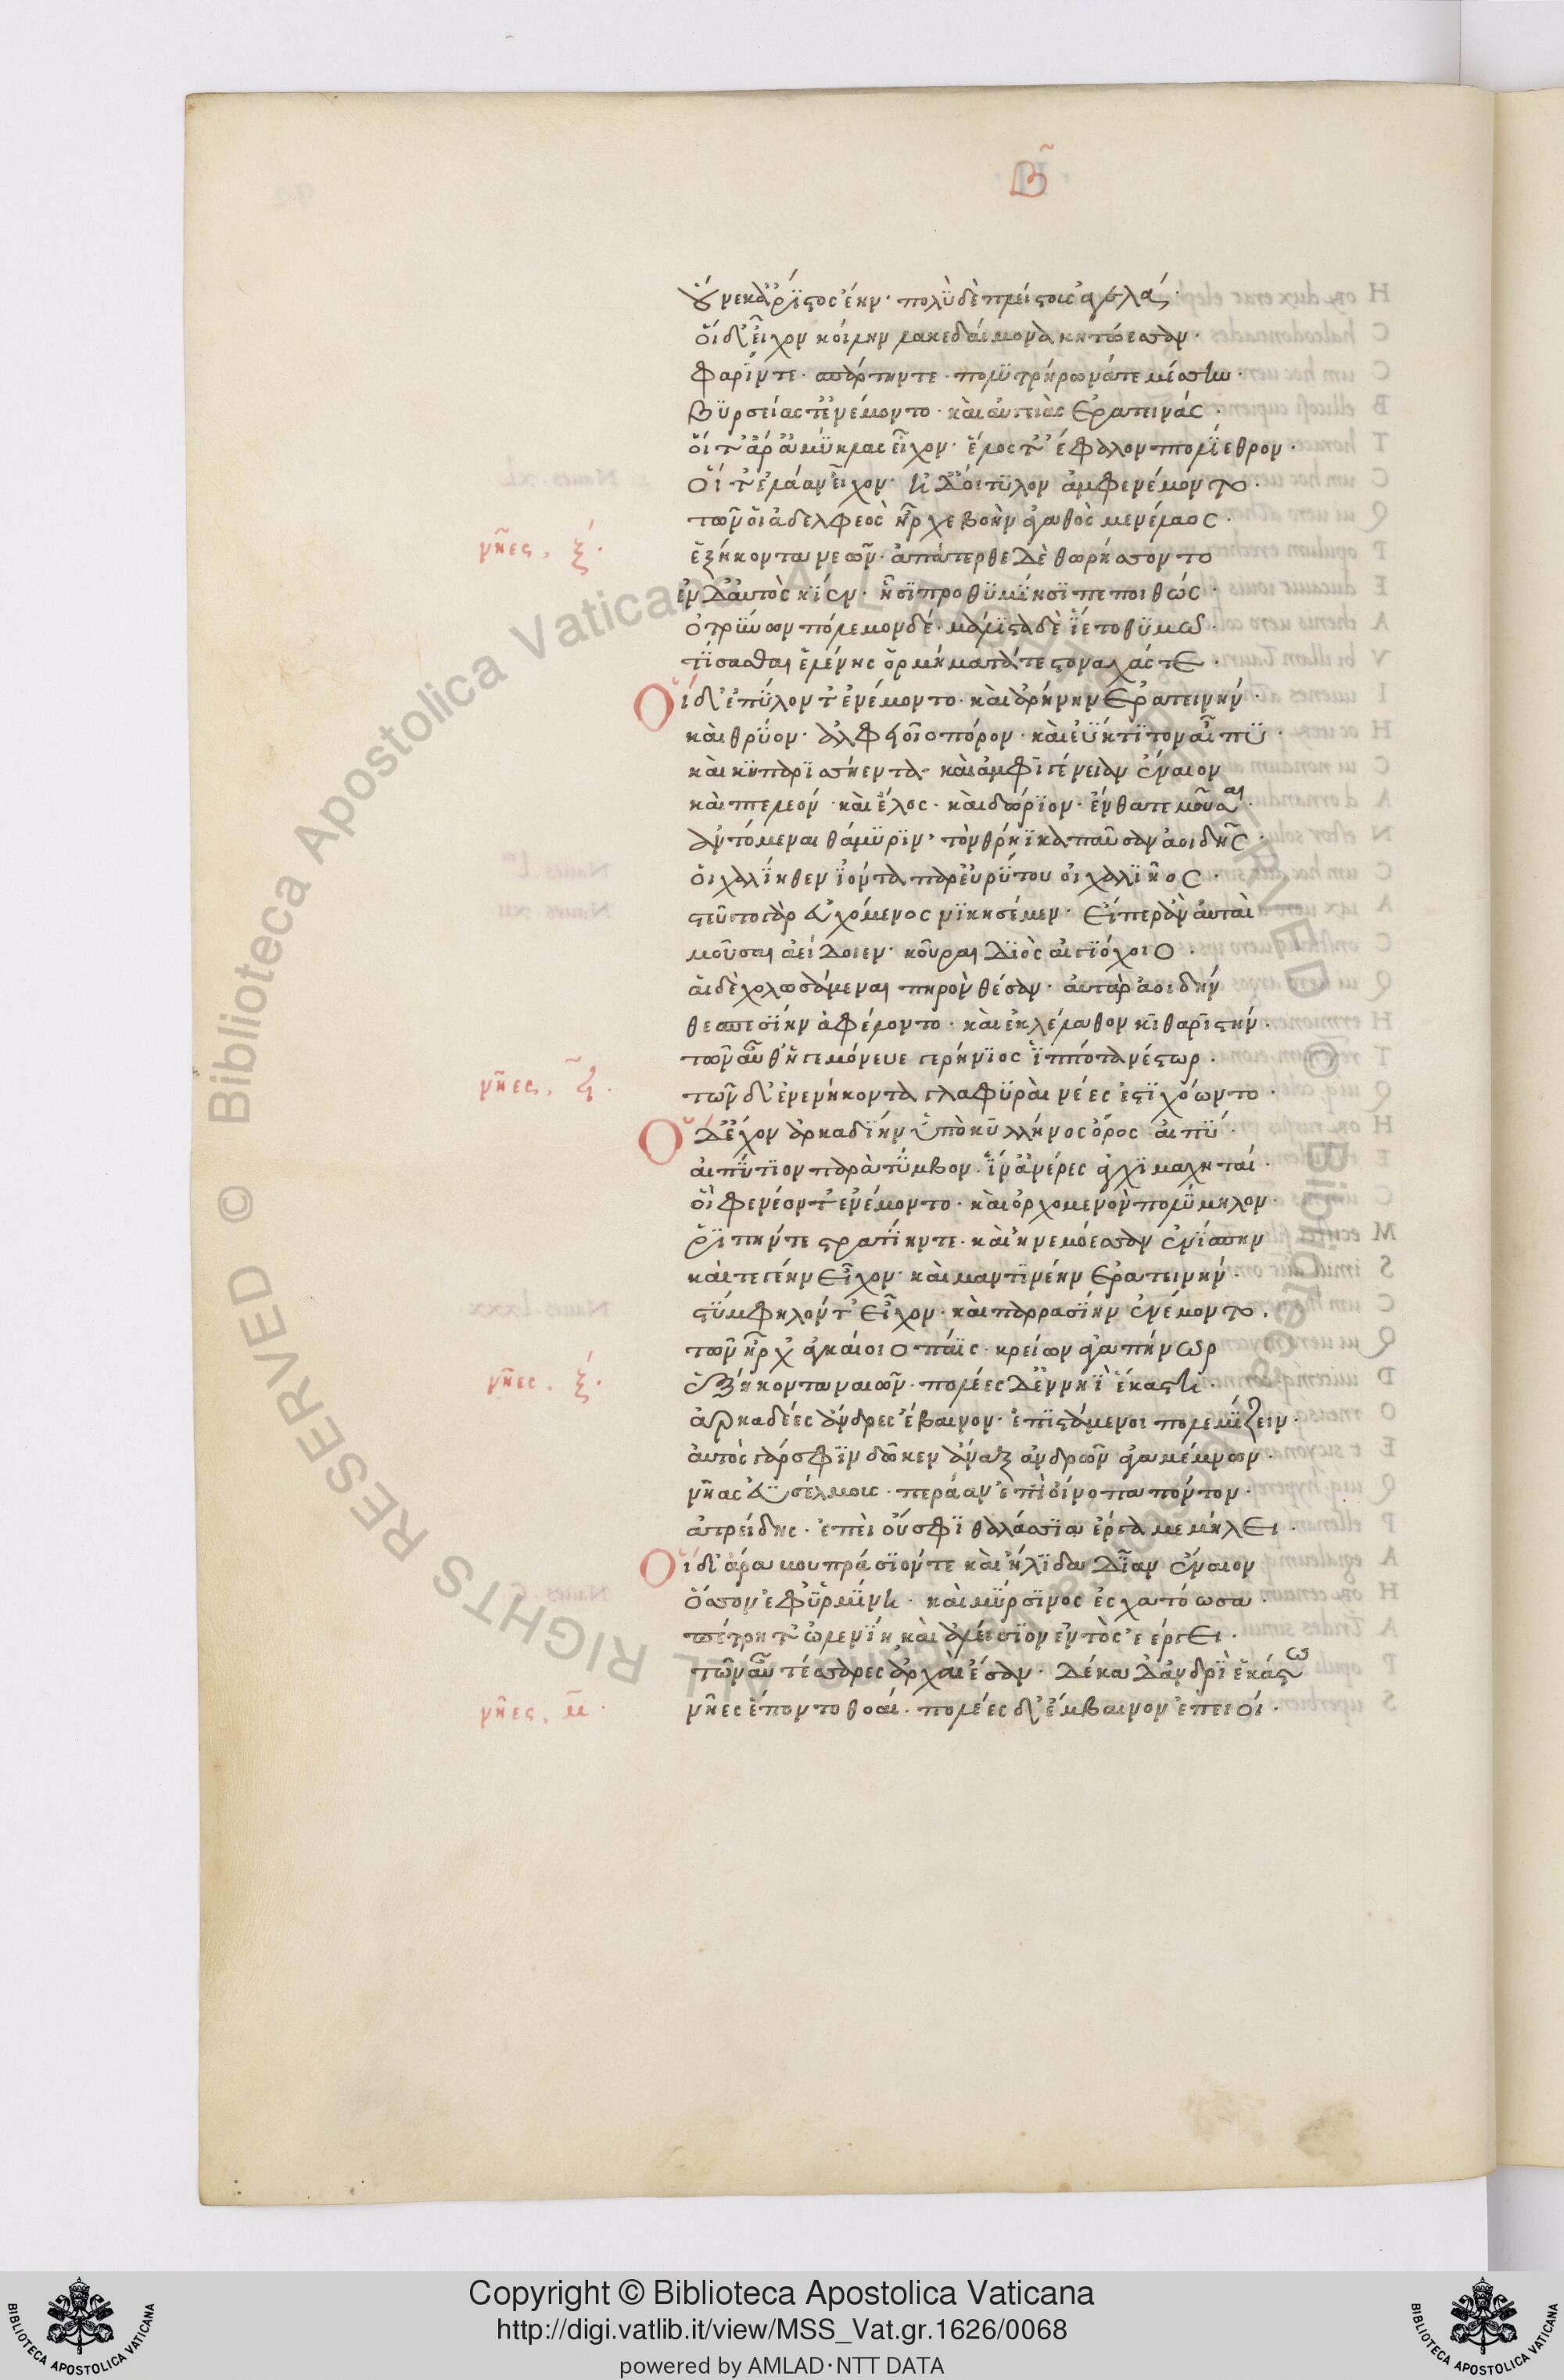 Β
οὕνεκ' ἄριστος ἔην· πολὺ δὲ πλείστους ἄγε λαούς·
οἵ δ' εἶχον κοίλην λακεδαίμονα κητώεσσαν·
φαρίν τε· σπάρτην τε· πολυτρήρωνά τε μέσσην·
βρυσείας τ' ἐνέμοντο· καὶ αὐγειὰς ἐρατεινάς·
οἵ τ' ἄρ' ἀμύκλας εἶχον· ἕλος τ' ἔφαλον πτολίεθρον·
οἵ τε λάαν εἶχον· ἠδ' οἴτυλον ἀμφενέμοντο·
τῶν οἱ ἀδελφεὸς ἦρχε βοὴν ἀγαθὸς μενέλαος·
νῆες, ξ·
ἑξήκοντα νεῶν· ἀπάτερθε δὲ θωρήσσοντο
ἐν δ' αὐτὸς κίεν· ᾗσι προθυμίῃσι πεποιθώς·
ὀτρύνων πόλεμον δέ· μάλιστα δὲ ἵετο θυμῶ·
τίσασθαι ἑλένης ὁρμήματά τε στοναχάς τε·
Οἵ δὲ πύλον τ' ἐνέμοντο· καὶ ἀρήνην ἐρατεινήν·
καὶ θρύον· ἀλφειοῖο πόρον· καὶ ἐύκτιτον αἶπυ·
καὶ κυπαρισσήεντα· καὶ ἀμφιγένειαν ἔναιον
καὶ πτελεόν· καὶ ἕλος· καὶ δώριον· ἔνθα τε μοῦσαι·
ἀντόμεναι θάμυριν· τὸν θρήικα παῦσαν ἀοιδῆς·
οἰχαλίηθεν ἰόντα παρ' εὐρύτου οἰχαλιῆος·
στεῦτο γὰρ εὐχόμενος νικησέμεν· εἴπερ ἂν αὐταὶ
μοῦσαι ἀείδοιεν· κοῦραι διὸς αἰγιόχοιο·
αἱ δὲ χολωσάμεναι πηρὸν θέσαν· αὐτὰρ ἀοιδήν
θεσπεσίην ἀφέλοντο· καὶ ἐκλέλαθον κιθαριστήν·
τῶν αὖθ' ἡγεμόνευε γερήνιος ἱππότα νέστωρ·
νῆες, ϟ·
τῶν δ' ἐνενήκοντα γλαφυραὶ νέες ἐστιχόωντο·
Οἵ δ' ἔχον ἀρκαδίην ὑπὸ κυλλήνης ὄρος αἰπύ·
αἰπύτιον παρὰ τύμβον· ἵν' ἀνέρες ἀγχιμαχηταί·
οἳ φενεόν τ' ἐνέμοντο· καὶ ὀρχομενὸν πολύμηλον·
ῥίπην τε στρατίην τε· καὶ ἠνεμόεσσαν ἐνίσπην
καὶ τεγέην εἶχον· καὶ μαντινέην ἐρατεινήν·
στύμφηλόν τ' εἶχον· καὶ παρρασίην ἐνέμοντο·
τῶν ἦρχ' ἀγκαίοιο πάις· κρείων ἀγαπήνωρ
νῆες, ξ·
ἑξήκοντα ναιῶν· πολέες δ' ἐν νηὶ ἑκάστη·
ἀρκαδέες ἄνδρες ἔβαινον· ἐπιστάμενοι πολεμίζειν·
αὐτὸς γάρ σφιν δῶκεν ἄναξ ἀνδρῶν ἀγαμέμνων·
νῆας ἐυσέλμους· περάαν ἐπὶ οἴνοπα πόντον·
ἀτρείδης· ἐπεὶ οὔ σφι θαλάσσια ἔργα μεμήλει·
Οἵ δ' ἄρα βουπράσιόν τε καὶ ἤλιδα δῖαν ἔναιον
ὅσσον ἐφ' ὑρμίνη· καὶ μύρσινος ἐσχατόωσα·
πέτρη τ' ὠλενίη καὶ ἀλείσιον ἐντὸς ἐέργει·
τῶν αὖ τέσσαρες ἀρχοὶ ἔσαν· δέκα δ' ἀνδρὶ ἑκάστω
νῆες, μ·
νῆες ἕποντο θοαί· πολέες δ' ἔμβαινον ἐπειοί·
Copyright © Biblioteca Apostolica Vaticana
http://digi.vatlib.it/view/MSS_Vat.gr.1626/0068
powered by AMLAD·NTT DATA